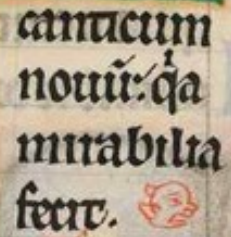 canticum
nouū: qͥa
mirabilia
fecit.